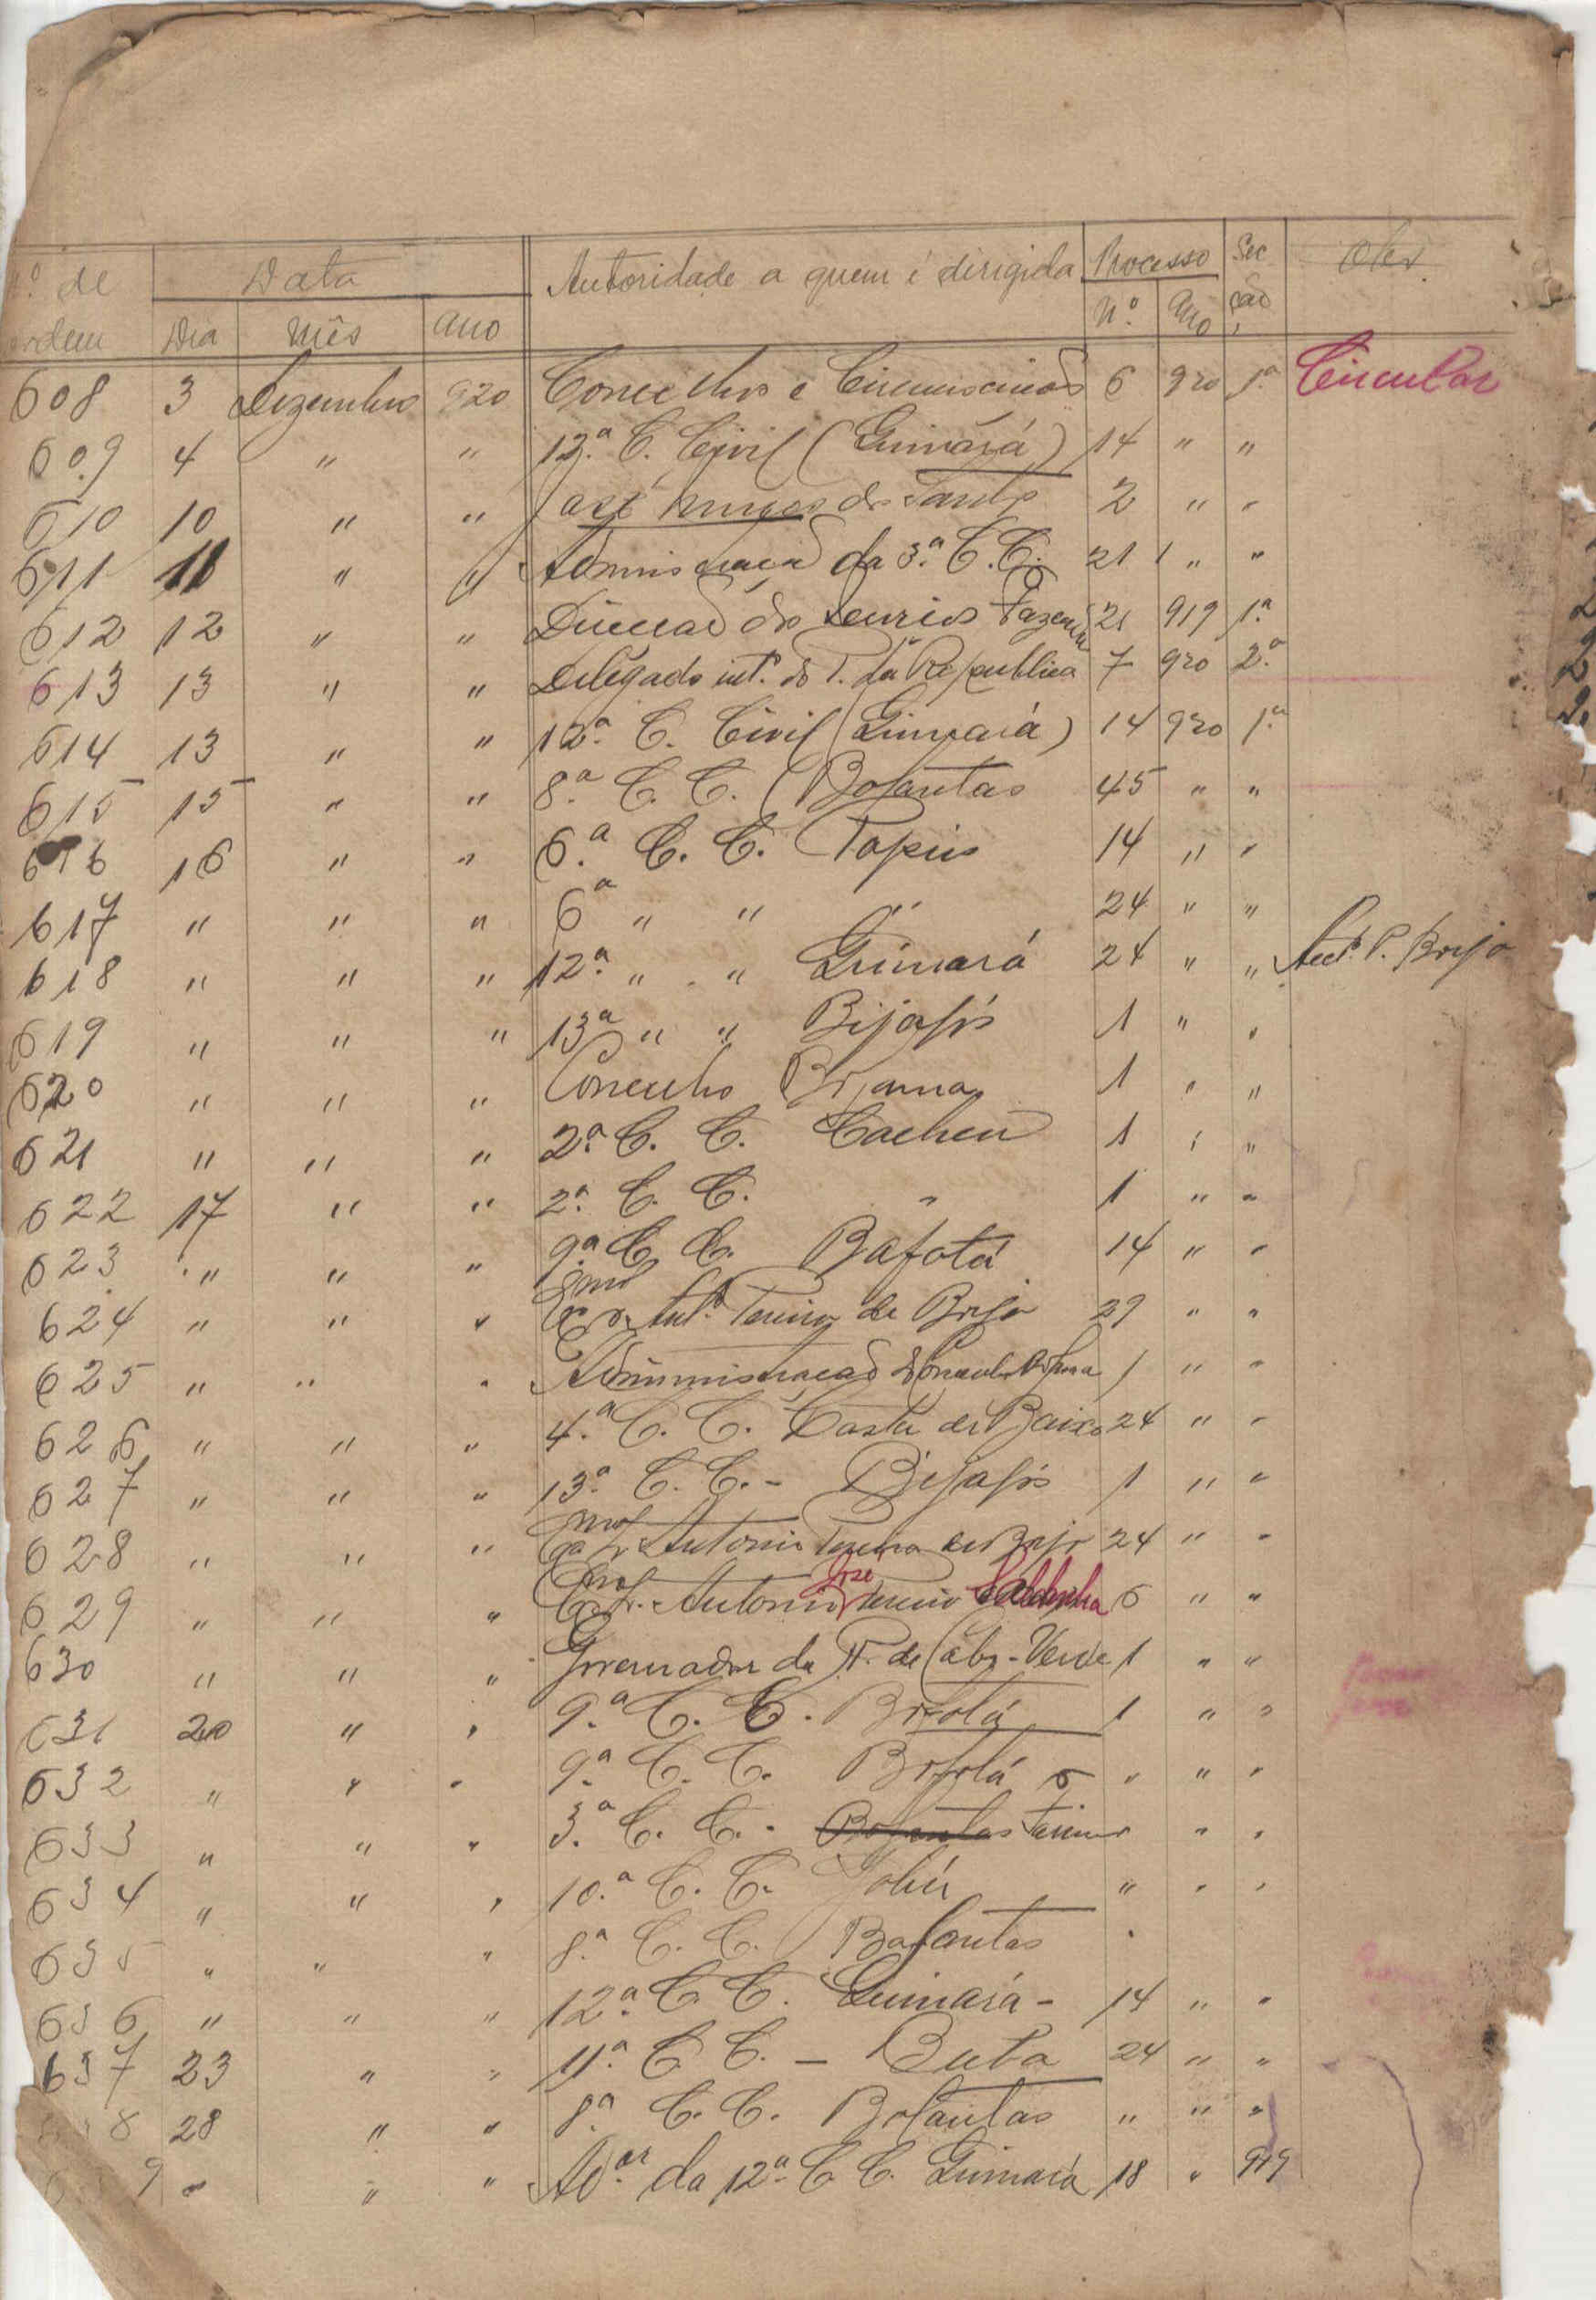 N.º de ordem Data Autoridade a quem é dirigida Processo Secção Obs
Dia Mês Ano N.º Ano
608 3 Dezembro 920 Concelhos e Circunscrições 6 920 1.ª Circular
609 4 " " 12.ª C. Civil (Quinará) 14 " "
610 10 " " José Nunes dos Santos 2 " "
611 11 " " Administração da 3.ª C. C. 21 " "
612 12 " " Direcção dos Serviços Fazenda 21 919 1.ª
613 13 " " Delegado int.º do P. da Republica 7 920 2.ª
614 13 " " 12.ª C. Civil (Quinará) 14 920 1.ª
615 15 " " 8.ª C. C. (Bolantas 45 " "
616 16 " " 6.ª C. C. Papeis 14 " "
617 " " " 6ª " " " 24 " "
618 " " " 12.ª " " Quinará 24 " " Ant.º P. Brejo
619 " " " 13ª " " Bijagós 1 " "
620 " " " Concelho Bolama 1 " "
621 " " " 2.ª C. C. Cacheu 1 " "
622 17 " " 2.ª C. C. " 1 " "
623 " " " 9.ª C. C. Bafatá 14 " "
624 " " " Exmo Sr. Ant.º Pereira de Brejo 29 " "
625 " " " Administração do Concelho Bolama 1 " "
626 " " " 4.ª C. C. Costa de Baixo 24 " "
627 " " " 13.ª C. C. - Bijagós 1 " "
628 " " " Exmo Sr. Antonio Pereira de Brejo 24 " "
629 " " " Exmo Sr. Antonio José Pereira Saldanha 6 " "
630 " " " Governador da P. de Cabo-Verde 1 " "
631 20 " " 9.ª C. C. Bafatá 1 " "
632 " " " 9.ª C. C. Bafatá " " "
633 " " " 3.ª C. C. - Bolantas Farim " "
634 " " " 10.ª C. C. Gabú " " "
635 " " " 8.ª C. C. Balantas "
636 " " " 12.ª C. C. Quinará - 14 " "
637 23 " " 11.ª C. C. - Buba 24 " "
8 28 " " 8.ª C. C. Bolantas " " "
9 " " " Ad.or da 12.ª C. C. Quinará 18 " 919